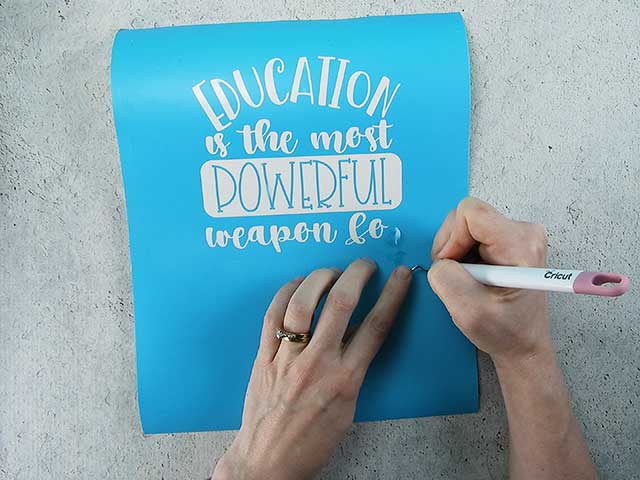 EDUCATION
is the most
POWERFUL
weapon fo
Cricut